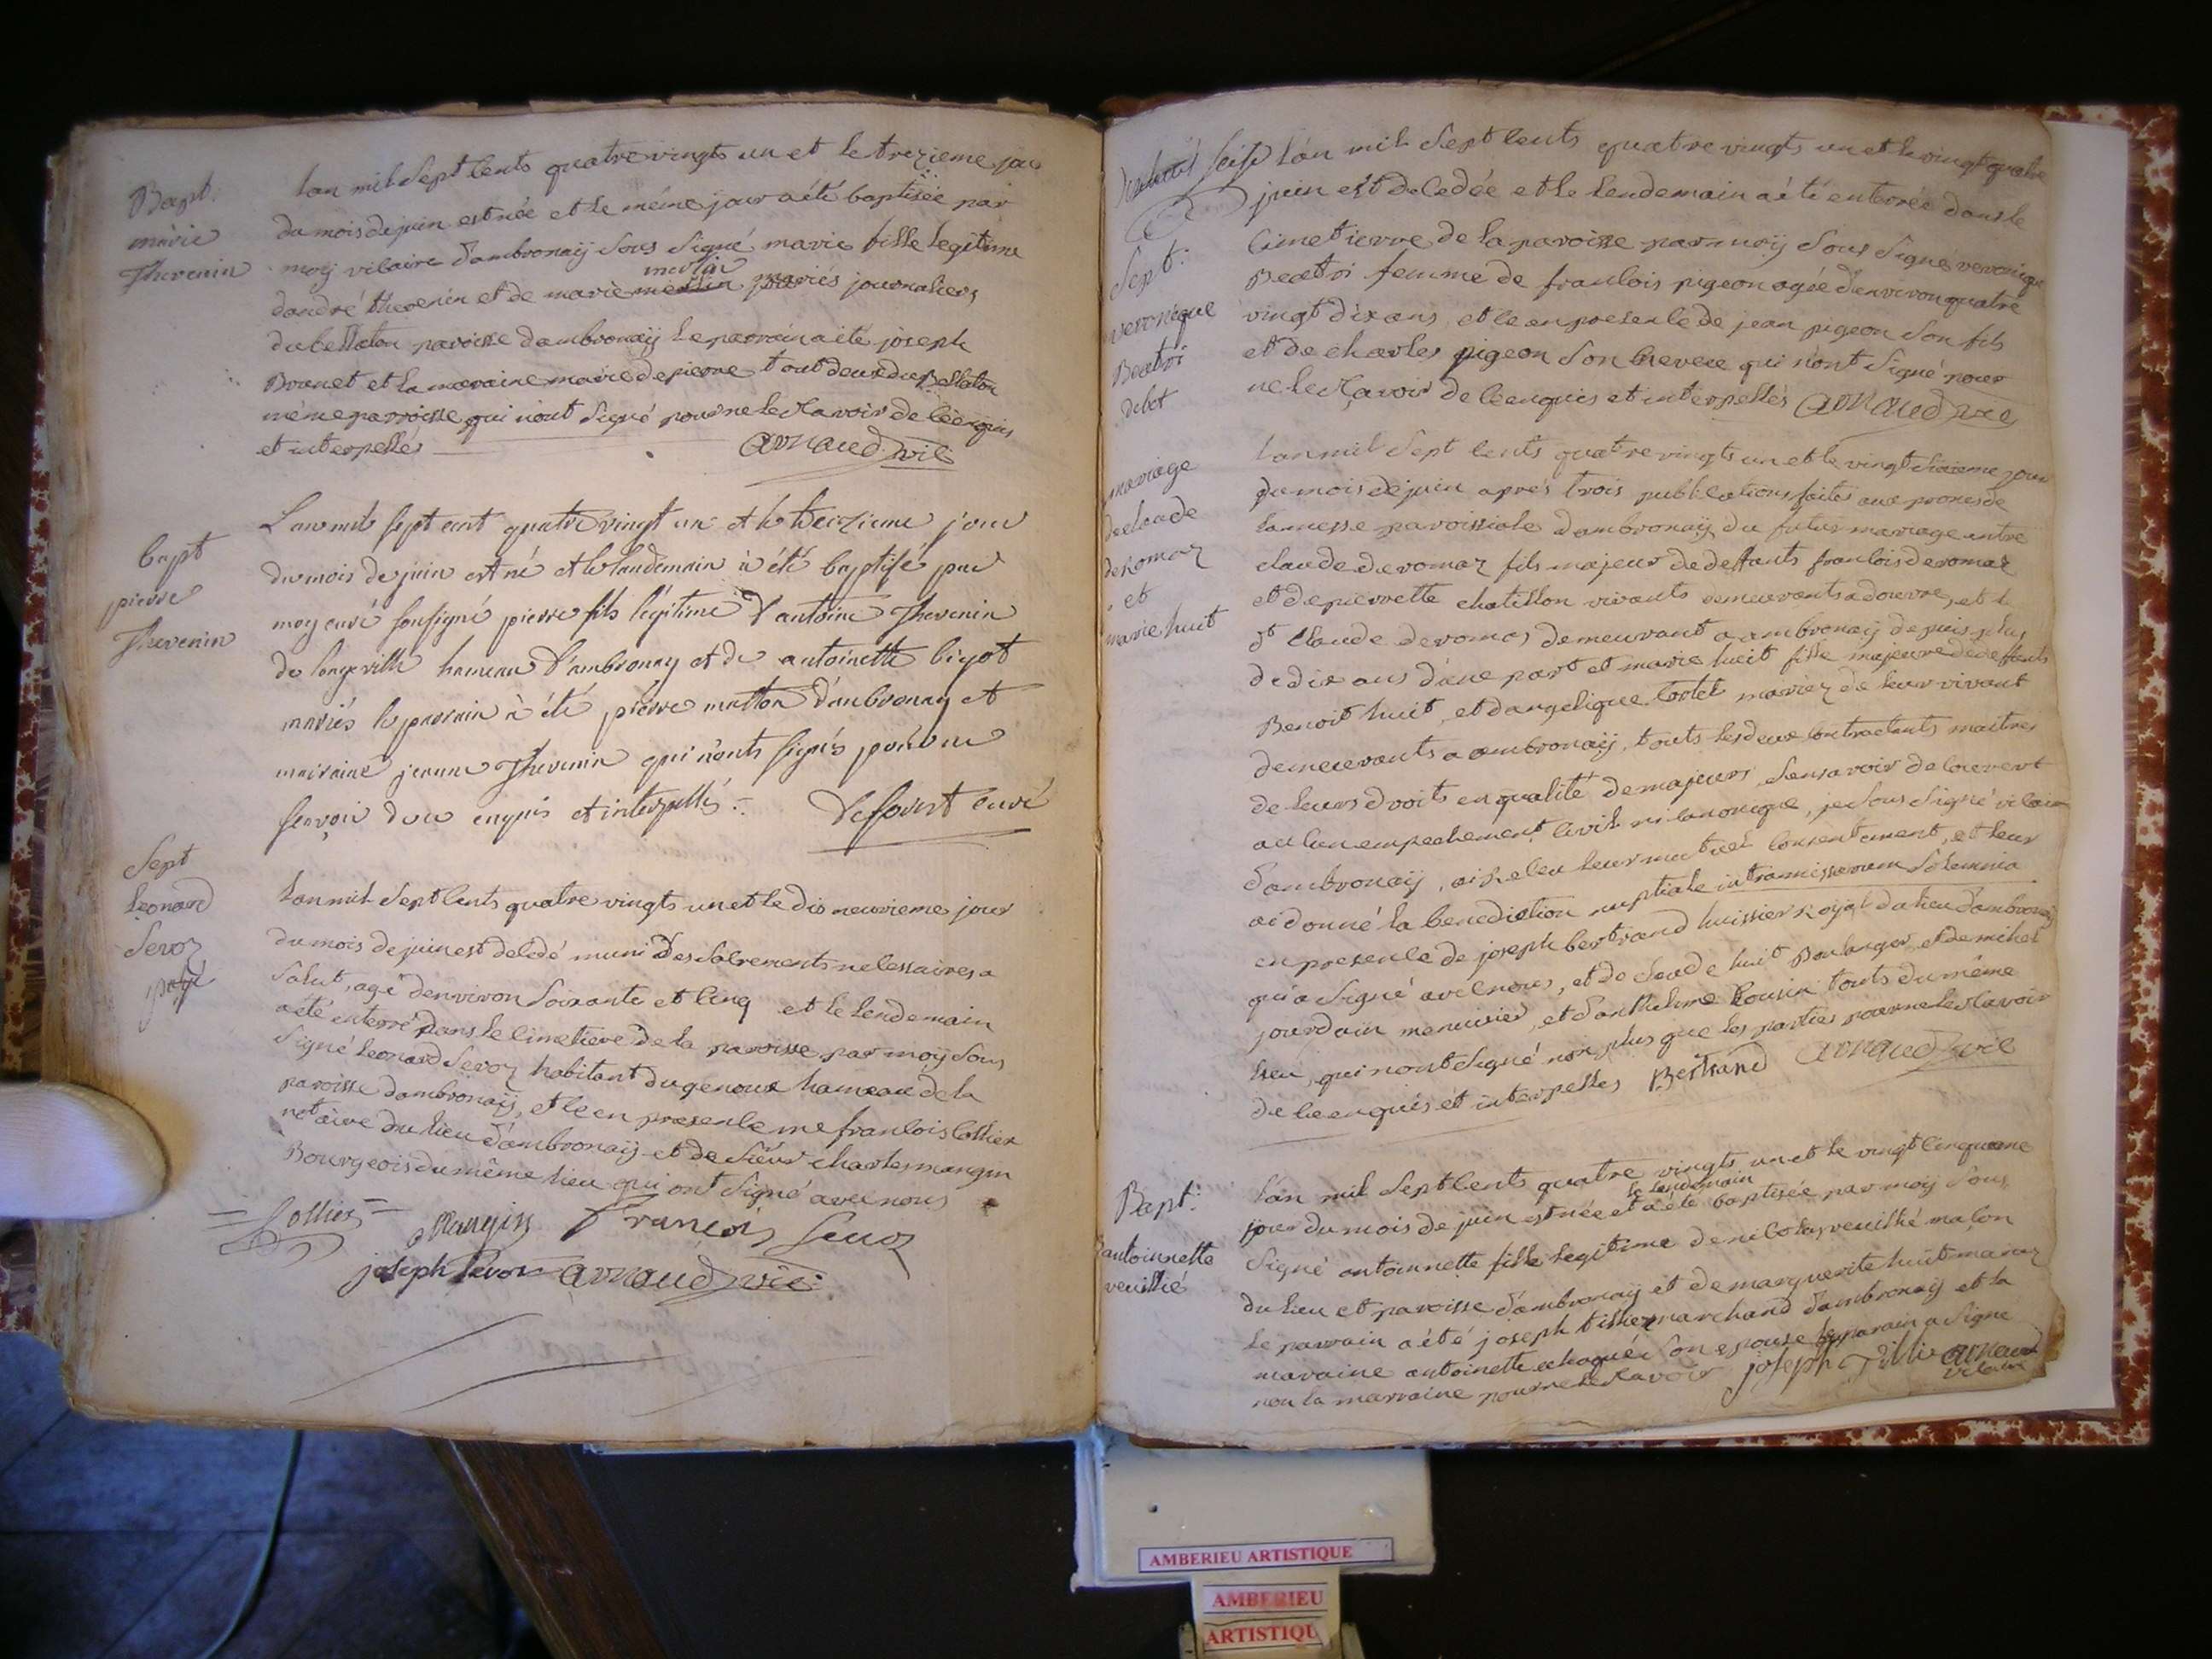 Bapt.
marie
Thevenin
Lan mil Sept Cents quatre vingts un et le trezieme jour
du mois de juin est née et le même jour a été baptisée par
moy vicaire d'ambronaÿ Sous Signé marie fille legitime
d'andré thevenin et de marie mariés journaliers
du bellaton paroisse dambronaÿ le parrain a été joseph
Brunet et la maraine marie depierre tout deux du Bellaton
même parroisse qui n'ont Signé pour ne le sçavoir de ce enquis
et interpellés arnaud vic
bapt
pierre
Thevenin
L'an mil sept cent quatre vingt un et le treizieme jour
du mois de juin est né et le landemain à été baptisé par
moy curé sousigné pierre fils légitime d'antoine Thevenin
de longeville hameau d'ambronay et de antoinette bigot
mariés le parrain à été pierre matton d'ambronay et
mairaine jeanne Thevenin qui n'onts signés pour ne
sçavoir de ce enquis et interpellés
curé
Sept
Leonard
Sevoz
Lan mil Sept Cents quatre vingts un et le dis neuvieme jour
du mois de juin est decedé muni des sacrements necessaires a
Salut, agé denviron Soixante et cinq et le lendemain
a été enterré dans le cimetiere de la paroisse par moÿ Sous
Signé Leonard Sevoz habitant dugenoux hameau de la
paroisse dambronaÿ, et ce en presence me francois Collier
notaire du lieu d'ambronaÿ et de Sieur charles mangin
Bourgeois du même lieu qui ont Signé avec nous
Collier Mangin François Sevoz
joseph Sevoz arnaud vic
l'an mil Sept Cents quatre vingts un et le vingt quatre
juin est decedée et le lendemain a été enterrée dans le
Sept:
veronique
Beatri
cimetierre de la paroisse par moÿ Sous Signé veronique
Beatri femme de francois pigeon agée d'environ quatre
vingt dix ans, et ce en presence de jean pigeon Son fils
et de charles pigeon Son neveu qui n'ont Signé pour
ne le sçavoir de ce enquis et interpellés arnaud vic
mariage
de claude
deromaz
et
marie huit
Lan mil Sept Cents quatre vingts un et le vingt Sixieme jour
du mois de juin aprés trois publications faites aux prones de
la messe paroissiale dambronaÿ du futur mariage entre
claude deromaz fils majeur de deffunts francois deromaz
et de pierrette chatillon vivants demeurants a douvre, et le
dt Claude deromas demeurant a ambronaÿ depuis plus
de dix ans d'une part et marie huit fille majeure de deffunts
Benoit huit, et dangelique mariez de leur vivant
demeurants a ambronaÿ, touts les deux contractants maitres
de leurs droits en qualité de majeurs, Sans avoir decouvert
aucun empechement civil ni canonique, je Sous Signé vicaire
d'ambronaÿ, ai reçeu leur mutuel consentement, et leur
ai donné la benediction nuptiale intra missarum Solemnia
en presence de joseph bertrand huissier Roÿal du lieu d'ambronaÿ
qui a Signé avec nous, et de claude huit Boulanger, et de michel
jourdain menuisier, et d'anthelme Cousin touts du même
lieu, qui n'ont Signé non plus que les parties pour ne le sçavoir
de ce enquis et interpelles Bertrand arnaud vic
Bapt:
antoinnette
veuillié
L'an mil Sept Cents quatre vingts un et le vingt Cinquieme
jour du mois de juin est née et le lendemain a été baptisée par moÿ Sous
Signé antoinnette fille legitime de nicolas veuillié maçon
du lieu et paroisse d'ambronaÿ et de marguerite huit mariez
le parrain a été joseph marchand d'ambronaÿ et la
maraine antoinette Son epouse le parain a Signe
non la marraine pour ne le sçavoir joseph arnaud
vicaire
AMBERIEU ARTISTIQUE
AMBERIEU
ARTISTIQU